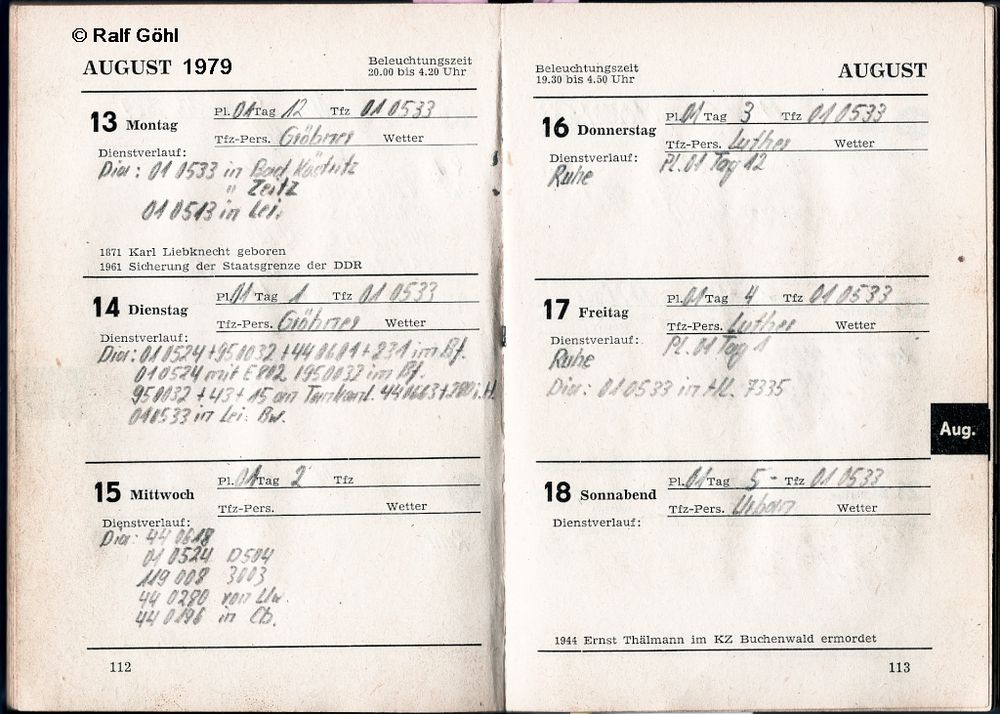 © Ralf Göhl
AUGUST 1979
Beleuchtungszeit
20.00 bis 4.20 Uhr
13 Montag
Pl. 01 Tag 12 Tfz 01 0533
Tfz-Pers. Gröbner Wetter
Dienstverlauf:
Dia: 01 0533 in Bad Köstritz
" Zeitz
01 0513 in Lei.
1871 Karl Liebknecht geboren
1961 Sicherung der Staatsgrenze der DDR
14 Dienstag
Pl. 01 Tag 1 Tfz 01 0533
Tfz-Pers. Gröbner Wetter
Dienstverlauf:
Dia: 01 0524 + 95 0032 + 44 0601 + 231 im Bf.
01 0524 mit E 802 95 0032 im Bf.
95 0032 + 43 + 15 an 44 0663 + 280 i.H.
01 0533 in Lei. Bw.
15 Mittwoch
Pl. 01 Tag 2 Tfz
Tfz-Pers. Wetter
Dienstverlauf:
Dia: 44 0618
01 0524 D504
119 008 3003
44 0280 von
44 0196 in Cb.
112
Beleuchtungszeit
19.30 bis 4.50 Uhr
AUGUST
16 Donnerstag
Pl. 01 Tag 3 Tfz 01 0533
Tfz-Pers. Luther Wetter
Dienstverlauf: Pl. 01 Tag 12
Ruhe
17 Freitag
Pl. 01 Tag 4 Tfz 01 0533
Tfz-Pers. Luther Wetter
Dienstverlauf: Pl. 01 Tag 1
Ruhe
Dia: 01 0533 in 7335
Aug.
18 Sonnabend
Pl. 01 Tag 5 - Tfz 01 0533
Tfz-Pers. Urban Wetter
Dienstverlauf:
1944 Ernst Thälmann im KZ Buchenwald ermordet
113